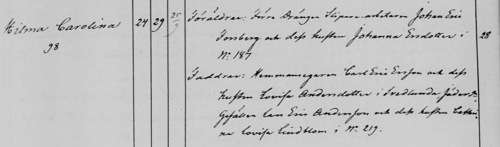 Hilma Carolina 24 29 25/9 Föräldrar: Förre Drängen Slipare arbetaren Johan Eric
98 Forsberg och dess hustru Johanna Ersdotter i 28
No 187
Faddrar: Hemmansegaren Carl Eric Ersson och dess
hustru Lovisa Andersdotter i Fredlunda, Jäder
Gesällen Lars Eric Andersson och dess hustru Cathri-
na Lovisa Lindblom i No 219.